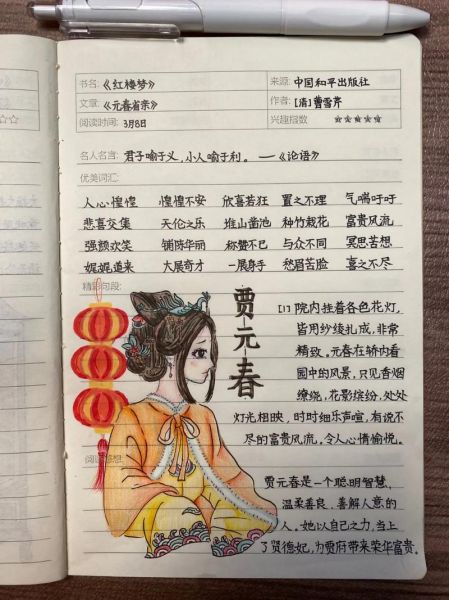 书名:《红楼梦》 来源: 中国和平出版社
文章:《元春省亲》 作者: [清]曹雪芹
阅读时间: 3月8日 兴趣指数 ☆☆☆☆☆
名人名言: 君子喻于义,小人喻于利。——《论语》
优美词汇:
人心惶惶 惶惶不安 欣喜若狂 置之不理 气喘吁吁
悲喜交集 天伦之乐 堆山凿池 种竹栽花 富贵风流
强颜欢笑 铺陈华丽 称赞不已 与众不同 冥思苦想
娓娓道来 大展奇才 一展身手 愁眉苦脸 喜之不尽
精彩句段:
贾元春
[1] 院内挂着各色花灯,
皆用纱绫扎成,非常
精致。元春在轿内看
园中的风景,只见香烟
缭绕,花影缤纷,处处
灯光相映,时时细乐声喧,有说不
尽的富贵风流。令人心情愉悦。
阅读感想:
贾元春是一个聪明智慧,
温柔善良、善解人意的
人。她以自己之力,当上
了贤德妃,为贾府带来荣华富贵。